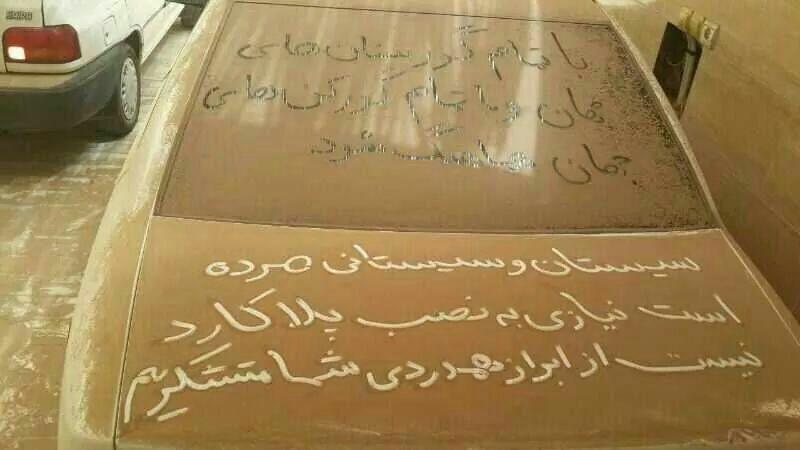 با تمام گورستان های
جهان و با تمام گورکن های
جهان هماهنگ شود
سیستان و سیستانی مرده
است نیازی به نصب پلاکارد
نیست از ابراز همدردی شما متشکریم